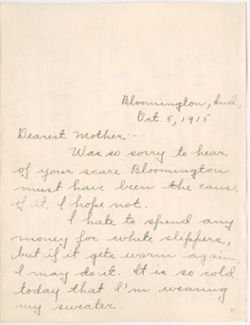 Bloomington, Ind,
Oct. 5, 1915.
Dearest Mother:-
Was so sorry to hear
of your scare. Bloomington
must have been the cause
of it. I hope not.
I hate to spend any
money for white slippers,
but if it gets warm again
I may do it. It is so cold
today that I'm wearing
my sweater.